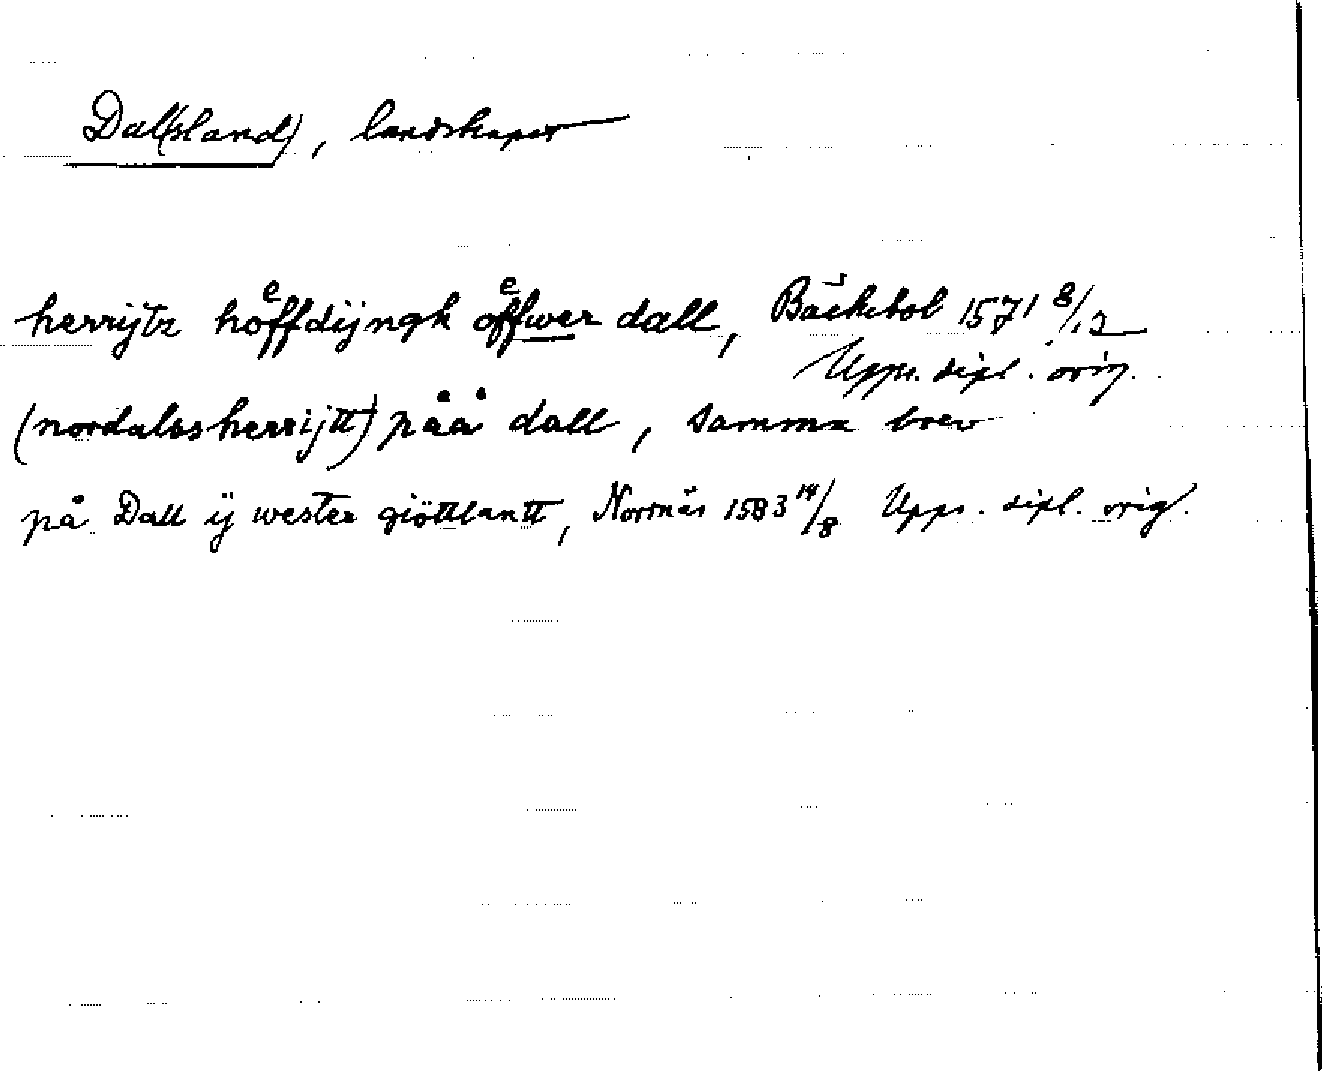 Dal(sland), landskapet
herrijtz hoͤffdijngk oͤffwer dall, Bäckebol 1571 8/12
Upps. dipl. orig.
(nordalssherrijtt) påå dall, samma brev
på Dall ij wester giöttlantt, Nornäs 1583 14/8 Upps. dipl. orig.